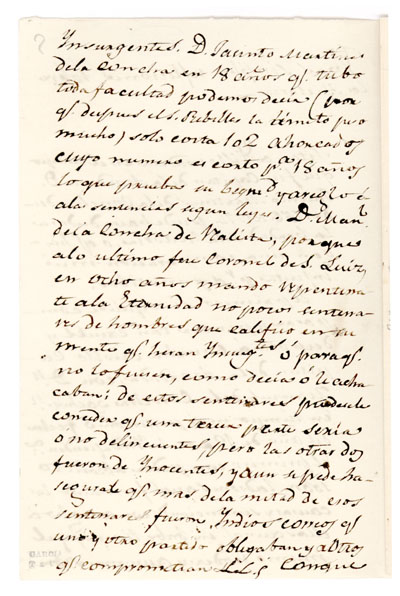 Insurgentes. D. Jacinto Martin
dela Concha en 18 años qᵉ. tubo
toda facultad podemos decir (por
qᵉ. despues el S. Rebolles la limito pʳ so
mucho) solo corta 102 ahorcados
cuyo numero es corto pᵃ. 18 años
lo que prueba su beniᵈ. y areglo é
ala sentencias segun leyes. D. Manˡ.
dela Concha de Realista, porque
a lo ultimo fue Coronel de S. Luiz,
en ocho años mando repentina
te ala Eternidad no pocos sentena
res de hombres que califico en su
mente qᵉ. heran Insugᵗᵉˢ. ó para qᵉ.
no lo fuesen, como decia ó le acha
caban; de estos sentenares puedesele
conceder qᵉ. una tercia parte seria
o no delincuentes, pero las otras dos
fueron de Inocentes, y aun se pede ha
segurar qᵉ. mas dela mitad de esos
sentenares fueron, Indios con os qᵉ
uno y otro partido obligaban y a otros
qᵉ. comprometian &.&.ª Conque